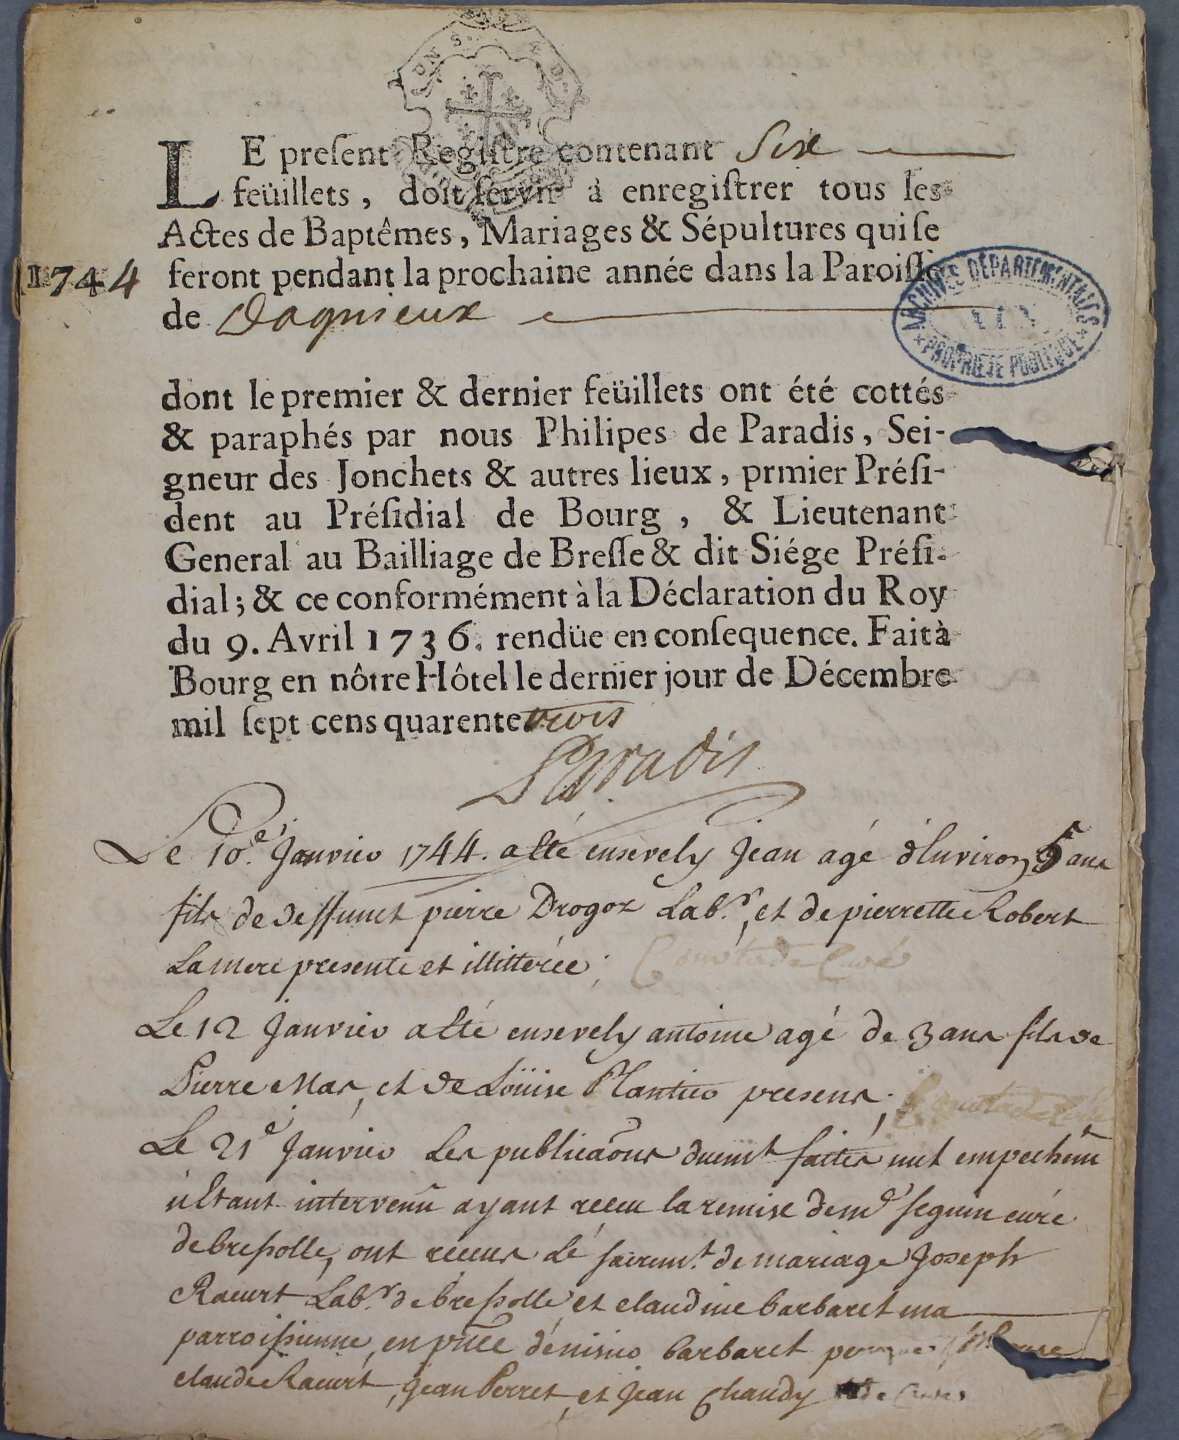 LE preſent Regiſtre contenant Six
feüillets, doit ſervir à enregiſtrer tous les
Actes de Baptêmes, Mariages & Sépultures qui ſe
1744 feront pendant la prochaine année dans la Paroiſſe
de Dagnieux
ARCHIVES DÉPARTEMENTALES
AIN
PROPRIÉTÉ PUBLIQUE
dont le premier & dernier feüillets ont été cottés
& paraphés par nous Philipes de Paradis, Sei-
gneur des Jonchets & autres lieux, prmier Préſi-
dent au Préſidial de Bourg, & Lieutenant
General au Bailliage de Breſſe & dit Siége Préſi-
dial; & ce conformément à la Déclaration du Roy
du 9. Avril 1736. rendüe en conſequence. Fait à
Bourg en nôtre Hôtel le dernier jour de Décembre
mil ſept cens quarente trois
Paradis
Le 10e. Janvier 1744. a esté ensevely Jean agé d'Environ 5 ans
fils de deffunct pierre Drogoz Labr., et de pierrette Robert
La mere presente et illitterée;
Le 12 Janvier a esté ensevely antoine agé de 3 ans fils de
Pierre Mas, et de Loüise Plantier presens;
Le 21e Janvier Les publicaons duemt faites nul empechem̃
n'estant intervenũ ayant receu la remise de mr seguin curé
de bressolle, ont receus Le sacremt. de mariage Joseph
Racurt Labr. de bressolle, et claudine barbaret ma
parroissienne, en pñce de barbaret
claude Racurt, Jean Perret, et Jean Chaudy